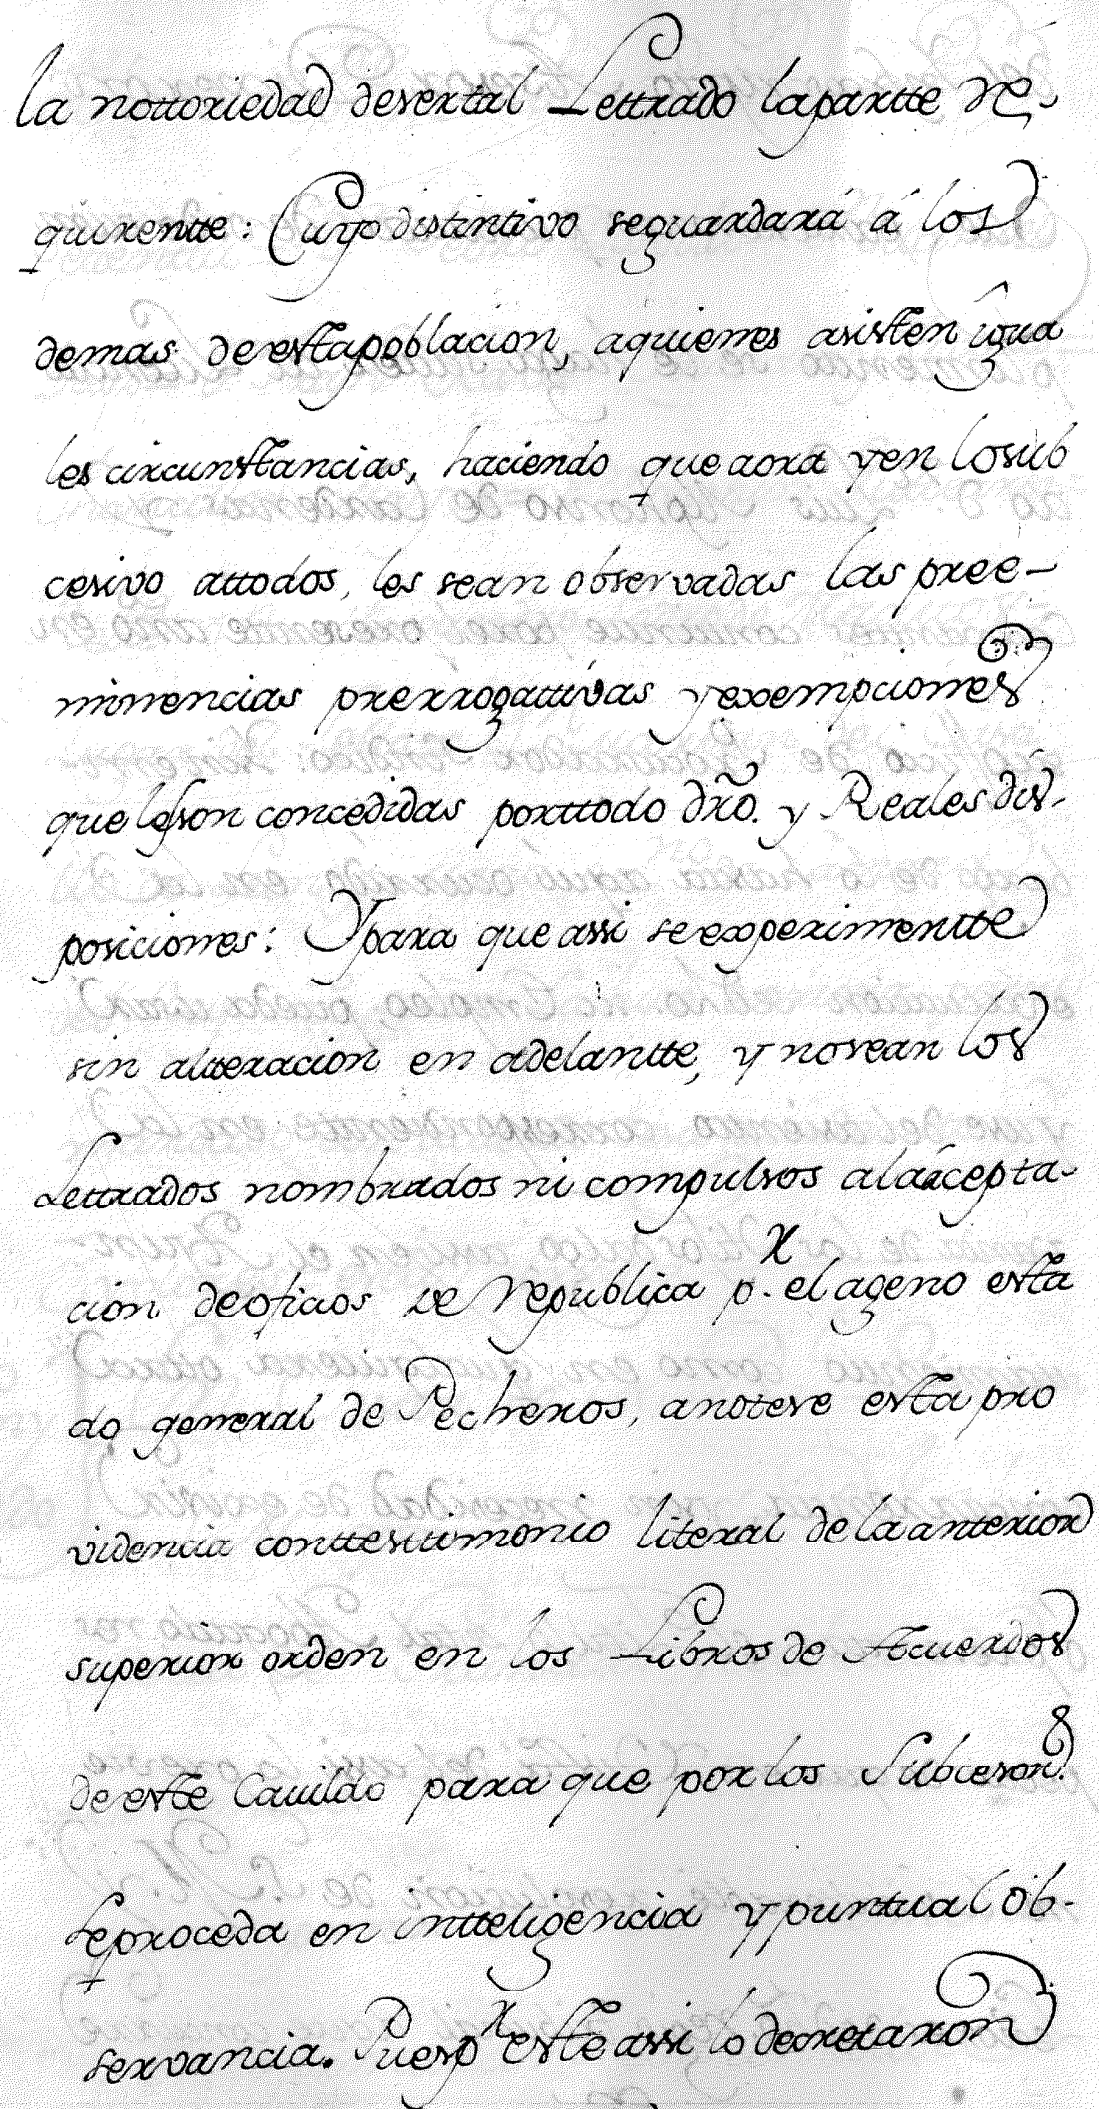 la nottoriedad deser tal Lettrado la partte re-
quirentte: Cuyo distintivo se guardará á los
demas de esta poblacion, a quienes asisten igua
les circunstancias, haciendo que aora y en lo sub
cesivo attodos, les sean observadas las pree-
minencias prerrogattivas y exempciones
que les son concedidas porttodo dr̃o. y Reales dis-
posiciones: Y para que assi se experimentte
sin altteracion en adelantte, y no sean los
Lettrados nombrados ni compulsos a la ácepta-
cion de oficios de republica p.r el ageno esta
do general de Pecheros, anotese esta pro
videncia conttesttimonio literal de la anterior
superior orden en los Libros de Acuerdos
de este Cauildo para que por los Subcesor.s
se proceda en intteligencia y puntual ob-
servancia. Pues p.r este assi lo decretaron